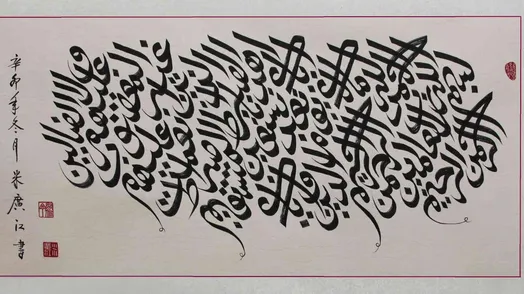 بسم الله الرحمن الرحيم
الحمد لله رب العالمين
الرحمن الرحيم
مالك يوم الدين
إياك نعبد وإياك نستعين
اهدنا الصراط المستقيم
صراط الذين أنعمت عليهم
غير المغضوب عليهم
ولا الضالين
辛卯年冬月 米廣江書